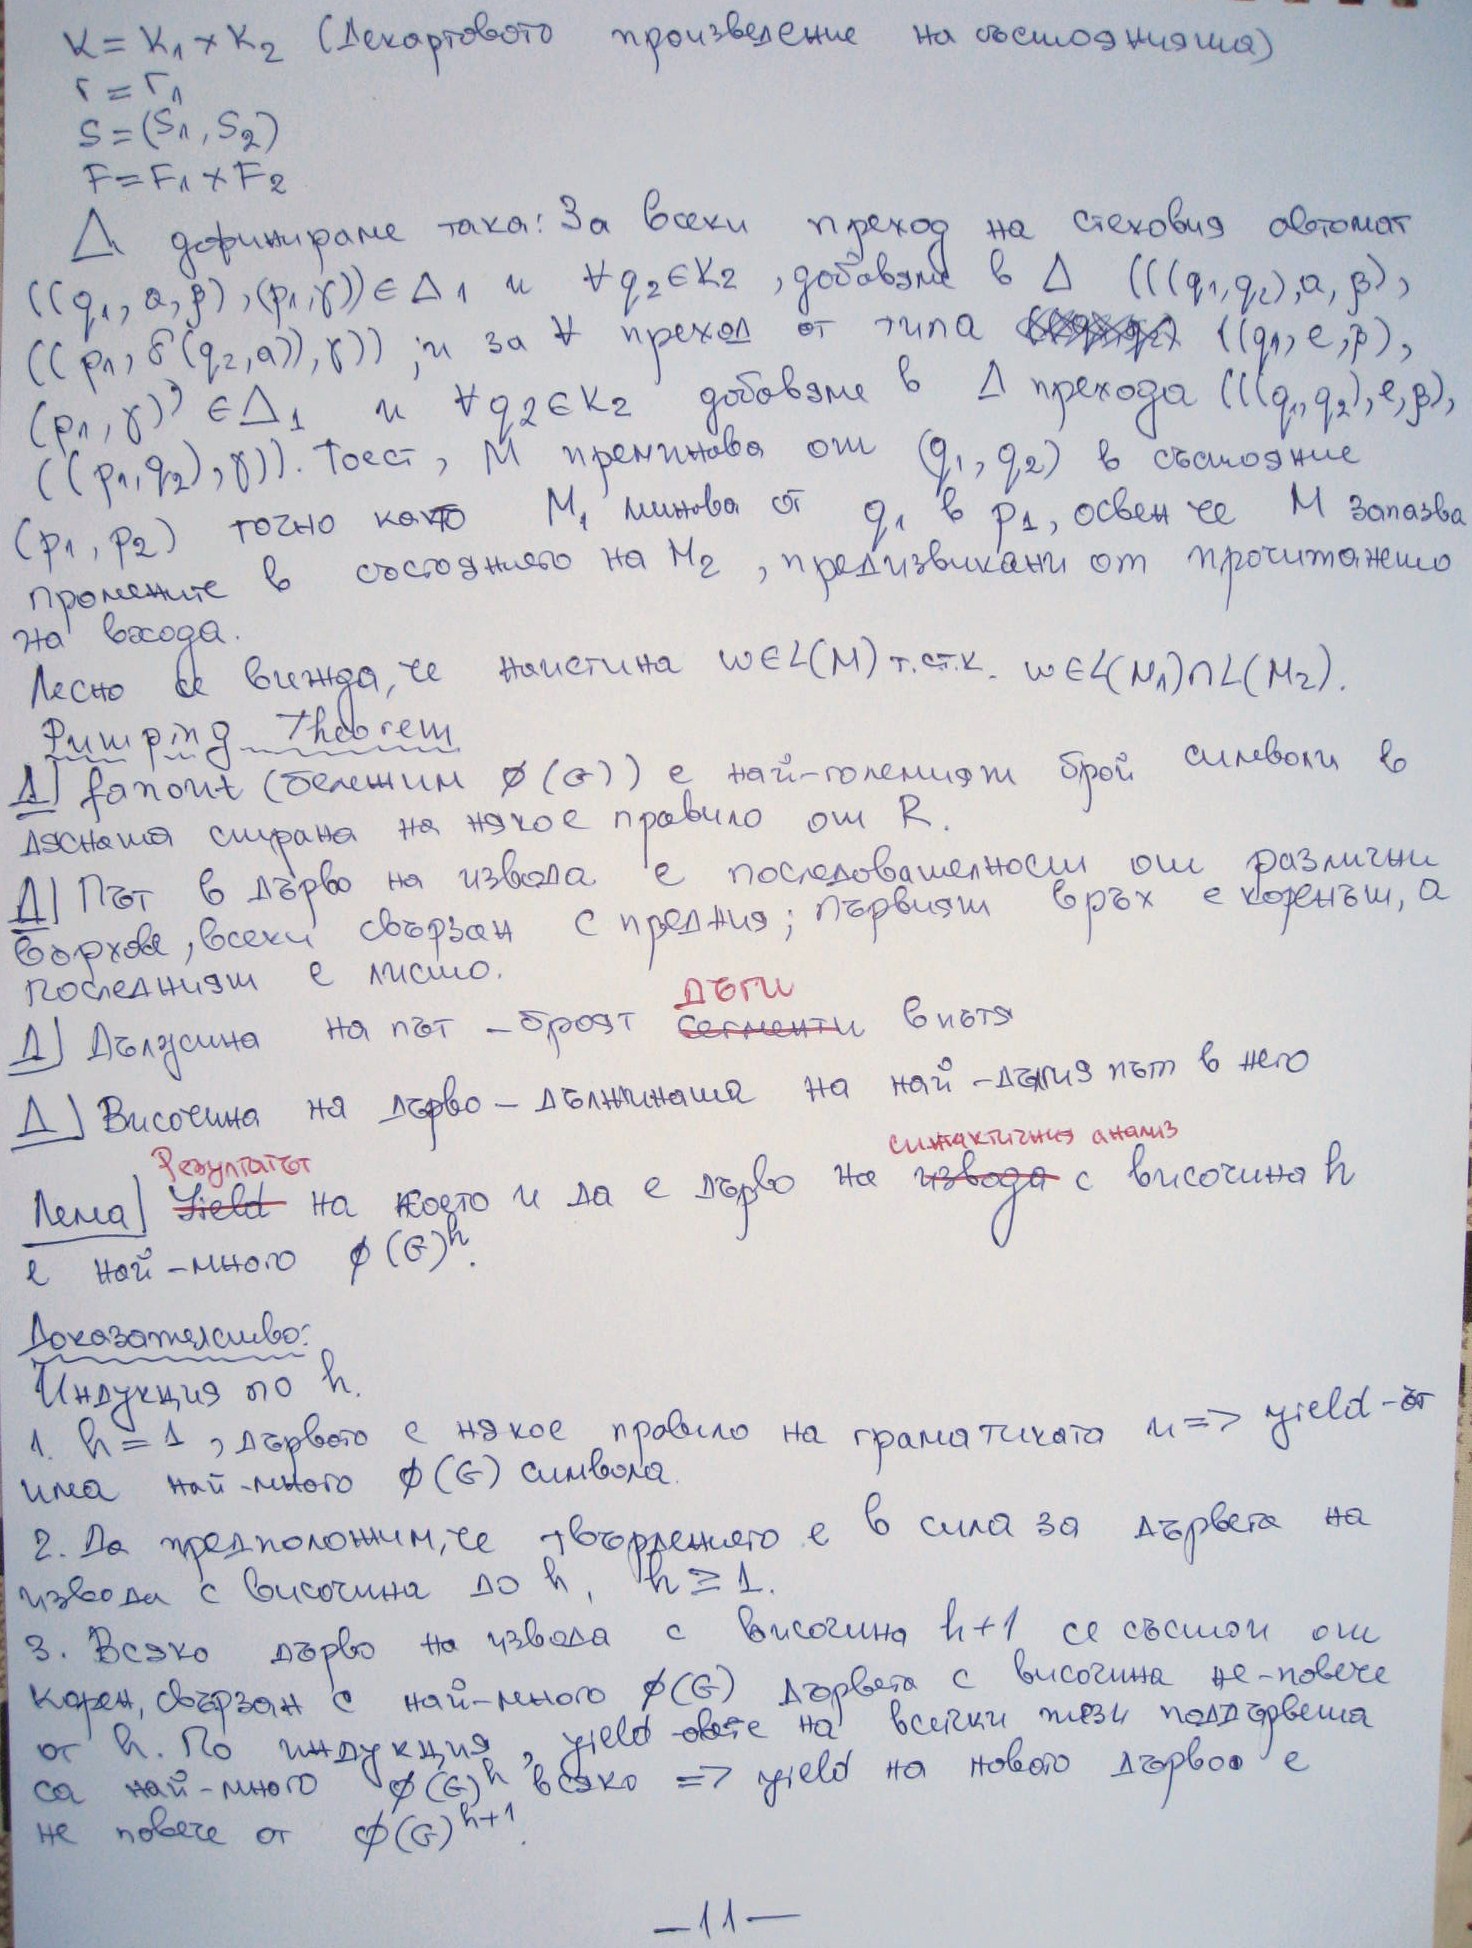 K = K₁ × K₂ (Декартовото произведение на състоянията)
Γ = Γ₁
S = (S₁, S₂)
F = F₁ × F₂
Δ дефинираме така: За всеки преход на стековия автомат
((q₁, a, β), (p₁, γ)) ∈ Δ₁ и ∀ q₂ ∈ K₂, добавяме в Δ (((q₁, q₂), a, β),
((p₁, δ(q₂, a)), γ)); и за ∀ преход от типа ((q₁, e, β),
(p₁, γ)) ∈ Δ₁ и ∀ q₂ ∈ K₂ добавяме в Δ прехода (((q₁, q₂), e, β),
((p₁, q₂), γ)). Тоест, M преминава от (q₁, q₂) в състояние
(p₁, p₂) точно както M₁ минава от q₁ в p₁, освен че M запазва
промените в състоянието на M₂, предизвикани от прочитането
на входа.
Лесно се вижда, че наистина w ∈ L(M) т.ст.к. w ∈ L(M₁) ∩ L(M₂).
Pumping Theorem
Д| fanout (бележим φ(G)) е най-големият брой символи в
дясната страна на някое правило от R.
Д| Път в дърво на извода е последователност от различни
върхове, всеки свързан с предния; първият връх е коренът, а
последният е листо.
дъги
Д| Дължина на път – броят сегменти в пътя
Д| Височина на дърво – дължината на най-дългия път в него
Резултатът синтактичния анализ
Лема| Yield на което и да е дърво на извода с височина h
е най-много φ(G)ʰ.
Доказателство:
Индукция по h.
1. h = 1, дървото е някое правило на граматиката и => yield-ът
има най-много φ(G) символа.
2. Да предположим, че твърдението е в сила за дървета на
извода с височина до h, h ≥ 1.
3. Всяко дърво на извода с височина h+1 се състои от
корен, свързан с най-много φ(G) дървета с височина не-повече
от h. По индукция, yield-овете на всички тези поддървета
са най-много φ(G)ʰ всяко => yield на новото дърво е
не повече от φ(G)ʰ⁺¹.
– 11 –